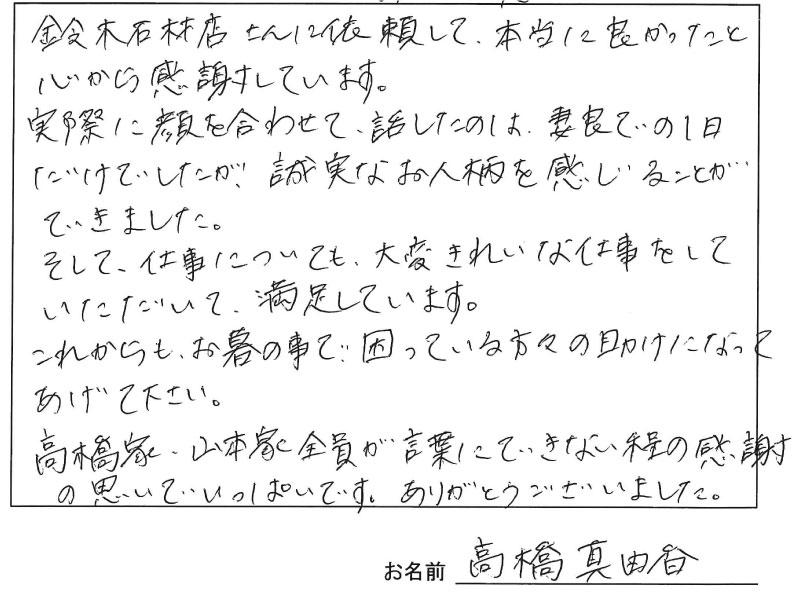 鈴木石材店さんに依頼して、本当に良かったこと
心から感謝しています。
実際に顔を合わせて、話したのは、妻良での1日
だけでしたが、誠実なお人柄を感じることが
できました。
そして、仕事についても、大変きれいな仕事をして
いただいて、満足しています。
これからも、お墓の事で困っている方々の助けになって
あげて下さい。
高橋家、山本家全員が言葉にできない程の感謝
の思いでいっぱいです。ありがとうございました。
お名前 高橋真由香